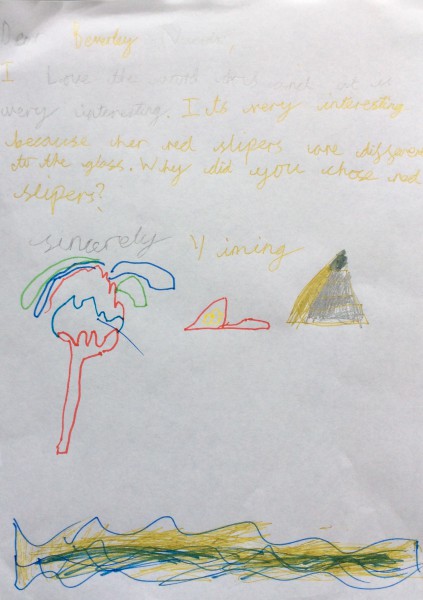 Dear Beverley
I Love the word and it is
very interesting. Its very interesting
because her red slipers are differen
to the glass. Why did you chose red
slipers?
sincerely Yiming